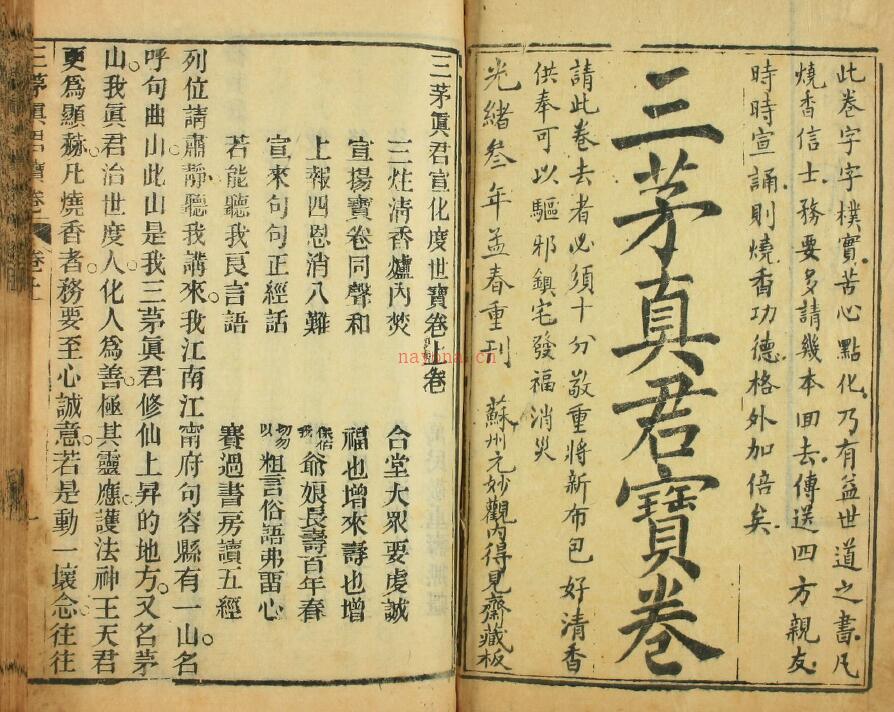 此卷字字樸實苦心點化乃有益世道之書凡
燒香信士務要多請幾本回去傳送四方親友
時時宣誦則燒香功德格外加倍矣
三茅真君寶卷
請此卷去者必須十分敬重將新布包好清香
供奉可以驅邪鎮宅發福消災
光緒叄年孟春重刊 蘇州元妙觀內得見齋藏板
三茅眞君宣化度世寶卷上卷
三炷清香爐內焚 合堂大眾要虔誠
宣揚寶卷同聲和 福也增來壽也增
上報四恩消八難 保佑我爺娘長壽百年春
宣來句句正經話 切勿以粗言俗語弗畱心
若能聽我良言語 賽過書房讀五經
列位請肅靜聽我講來我江南江甯府句容縣有一山名
呼句曲山此山是我三茅眞君修仙上昇的地方又名茅
山我眞君治世度人化人為善極其靈應護法神王天君
更爲顯赫凡燒香者務要至心誠意若是動一壞念往往
三茅眞君寶卷 卷上 一
nayona.cn